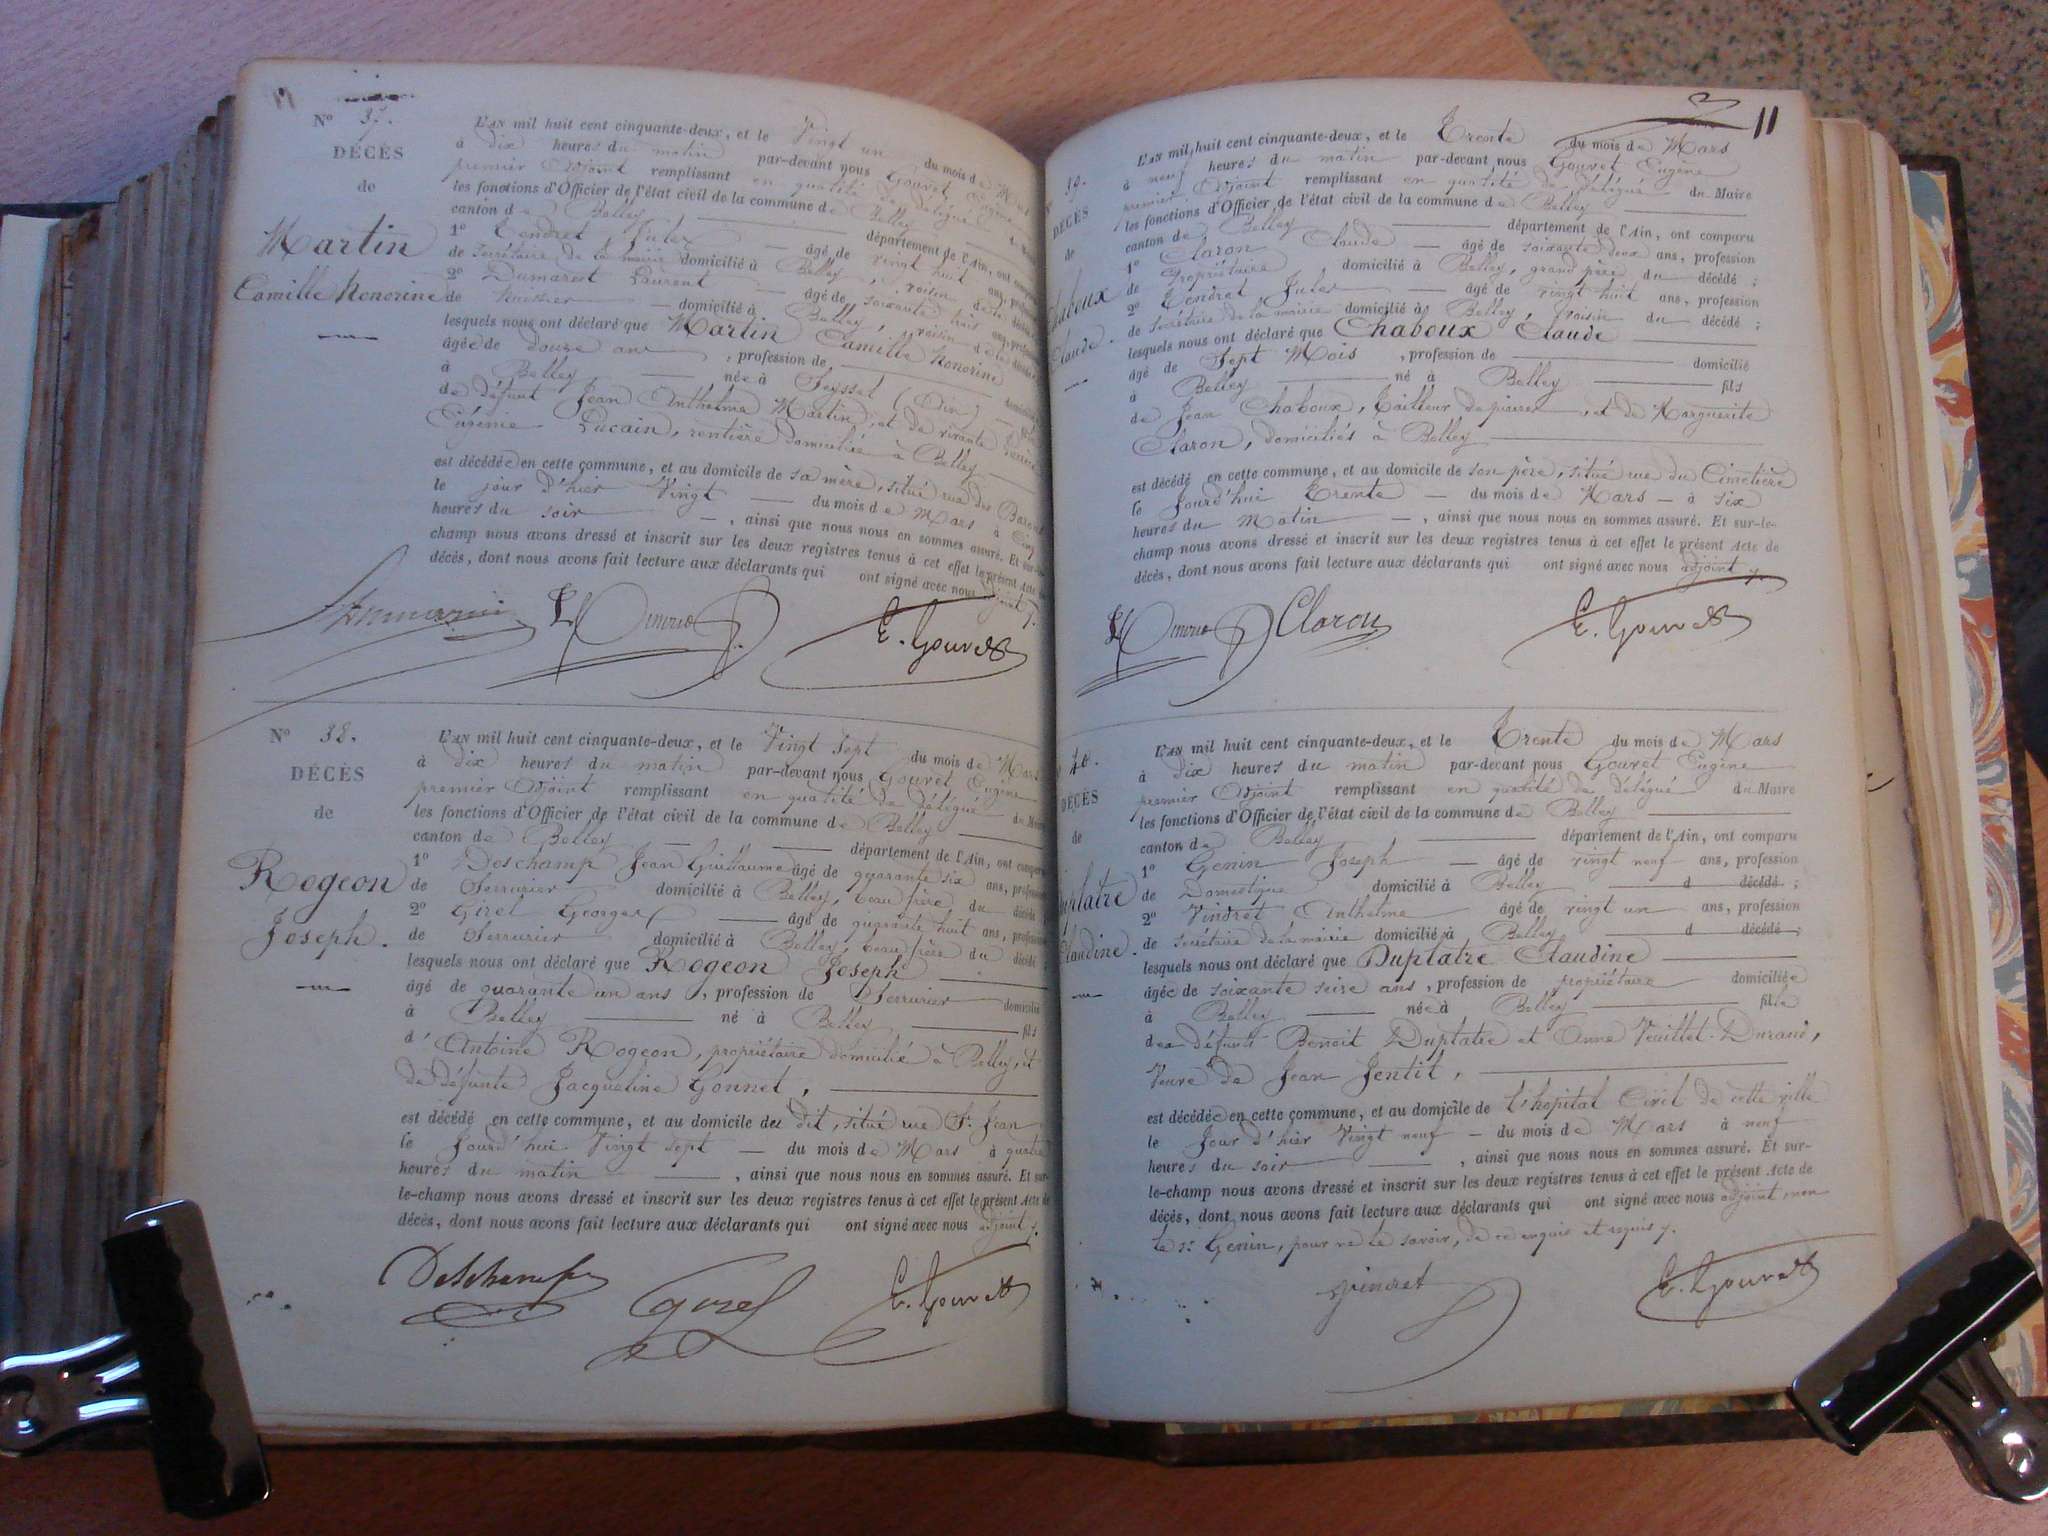 Nº 37.
DÉCÈS
de
Martin
Camille Honorine
L'AN mil huit cent cinquante-deux, et le Vingt un du mois de Mars
à dix heures du matin par-devant nous Gouvet Eugène
premier Adjoint remplissant en qualité de délégué
les fonctions d'Officier de l'état civil de la commune de Belley
canton de Belley département de l'Ain, ont comparu
1º Tendret Jules âgé de vingt huit ans, profession
de Secrétaire de la mairie domicilié à Belley, voisin de la décédée
2º Dumarest Laurent âgé de soixante trois ans, profession
de huissier domicilié à Belley, voisin de la décédée
lesquels nous ont déclaré que Martin Camille Honorine
âgée de douze ans, profession de
à Belley née à Seyssel (Ain)
de défunt Jean Anthelme Martin, et de vivante
Eugénie Lucain, rentière domiciliée à Belley
est décédée en cette commune, et au domicile de sa mère, situé rue des Barons
le jour d'hier Vingt du mois de Mars à Cinq
heures du soir, ainsi que nous nous en sommes assuré. Et sur-le-
champ nous avons dressé et inscrit sur les deux registres tenus à cet effet le présent Acte de
décès, dont nous avons fait lecture aux déclarants qui ont signé avec nous adjoint
E. Gouvet
Nº 38.
DÉCÈS
de
Rogeon
Joseph.
L'AN mil huit cent cinquante-deux, et le Vingt Sept du mois de Mars
à dix heures du matin par-devant nous Gouvet Eugène
premier Adjoint remplissant en qualité de délégué du Maire
les fonctions d'Officier de l'état civil de la commune de Belley
canton de Belley département de l'Ain, ont comparu
1º Deschamp Jean Guillaume âgé de quarante six ans, profession
de Serrurier domicilié à Belley, beau frère du décédé
2º Girel Georges âgé de quarante huit ans, profession
de Serrurier domicilié à Belley, beau frère du décédé
lesquels nous ont déclaré que Rogeon Joseph
âgé de quarante un ans, profession de Serrurier domicilié
à Belley né à Belley fils
d'Antoine Rogeon, propriétaire domicilié à Belley, et
de défunte Jacqueline Gonnet,
est décédé en cette commune, et au domicile du dit, situé rue St Jean
le Jourd'hui Vingt sept du mois de Mars à quatre
heures du matin, ainsi que nous nous en sommes assuré. Et sur-
le-champ nous avons dressé et inscrit sur les deux registres tenus à cet effet le présent Acte de
décès, dont nous avons fait lecture aux déclarants qui ont signé avec nous adjoint
Deschamp Girel E. Gouvet
11
39.
DÉCÈS
de
Chaboux
Claude.
L'AN mil huit cent cinquante-deux, et le Trente du mois de Mars
à neuf heures du matin par-devant nous Gouvet Eugène
premier Adjoint remplissant en qualité de délégué du Maire
les fonctions d'Officier de l'état civil de la commune de Belley
canton de Belley département de l'Ain, ont comparu
1º Claron Claude âgé de soixante deux ans, profession
de Propriétaire domicilié à Belley, grand père du décédé;
2º Tendret Jules âgé de vingt huit ans, profession
de Secrétaire de la mairie domicilié à Belley, voisin du décédé;
lesquels nous ont déclaré que Chaboux Claude
âgé de Sept Mois, profession de domicilié
à Belley né à Belley fils
de Jean Chaboux, Tailleur de pierres, et de Marguerite
Claron, domiciliés à Belley
est décédé en cette commune, et au domicile de son père, situé rue du Cimetière
le Jourd'hui Trente du mois de Mars à six
heures du Matin, ainsi que nous nous en sommes assuré. Et sur-le-
champ nous avons dressé et inscrit sur les deux registres tenus à cet effet le présent Acte de
décès, dont nous avons fait lecture aux déclarants qui ont signé avec nous adjoint
Claron E. Gouvet
40.
DÉCÈS
de
Duplatre
Claudine.
L'AN mil huit cent cinquante-deux, et le Trente du mois de Mars
à dix heures du matin par-devant nous Gouvet Eugène
premier Adjoint remplissant en qualité de délégué du Maire
les fonctions d'Officier de l'état civil de la commune de Belley
canton de Belley département de l'Ain, ont comparu
1º Genin Joseph âgé de vingt neuf ans, profession
de Domestique domicilié à Belley d décédé;
2º Vindret Anthelme âgé de vingt un ans, profession
de secrétaire de la mairie domicilié à Belley d décédé;
lesquels nous ont déclaré que Duplatre Claudine
âgée de soixante seize ans, profession de propriétaire domiciliée
à Belley née à Belley fille
des défunts Benoit Duplatre et Anne Veuillet-Durand,
Veuve de Jean Jentit,
est décédée en cette commune, et au domicile de l'hopital Civil de cette ville
le Jour d'hier Vingt neuf du mois de Mars à neuf
heures du soir, ainsi que nous nous en sommes assuré. Et sur-
le-champ nous avons dressé et inscrit sur les deux registres tenus à cet effet le présent Acte de
décès, dont nous avons fait lecture aux déclarants qui ont signé avec nous adjoint, non
le Sr Genin, pour ne le savoir, de ce enquis et requis
Vindret E. Gouvet